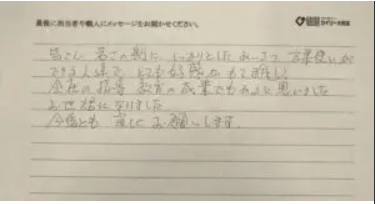 最後に担当者や職人にメッセージをお聞かせください。
皆さん 若さの割に しっかりとしたあいさつ 言葉使いが
できる人達で とても好感がもて嬉しい
会社の指導 教育の成果でもあると思いました
お世話になりました
今後とも 宜しくお願いします。